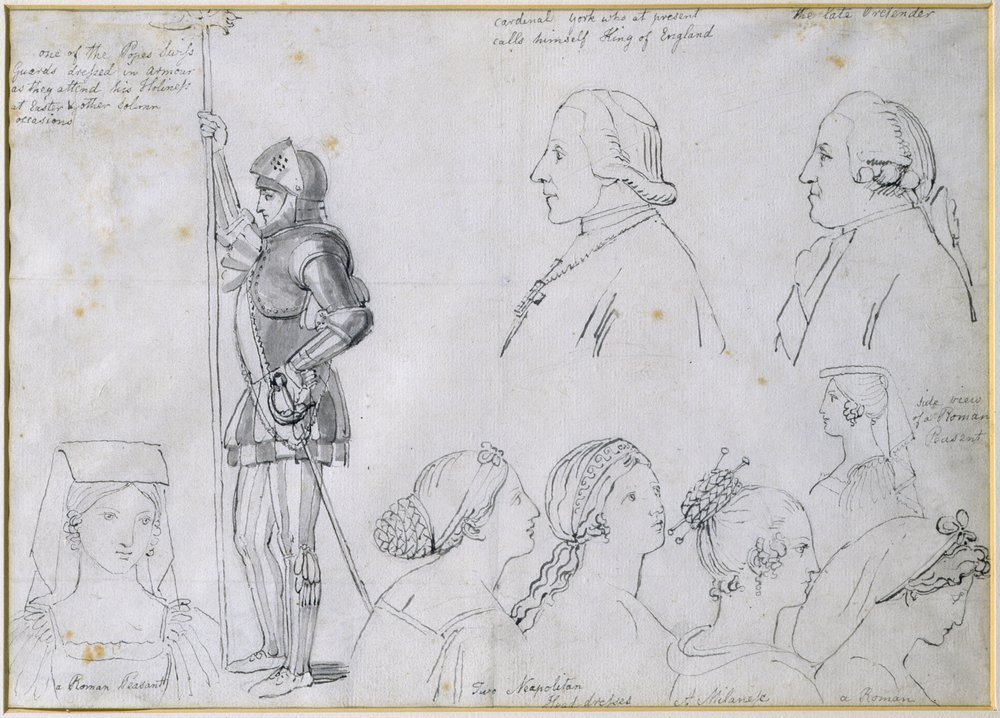 one of the Popes Swiss
Guards dressed in Armour
as they attend his Holiness
at Easter & other Solemn
occasions
Cardinal York who at present
calls himself King of England
the late Pretender
side view
of a Roman
Peasent
a Roman Peasant
Two Neapolitan
Head dresses
A Milanese
a Roman